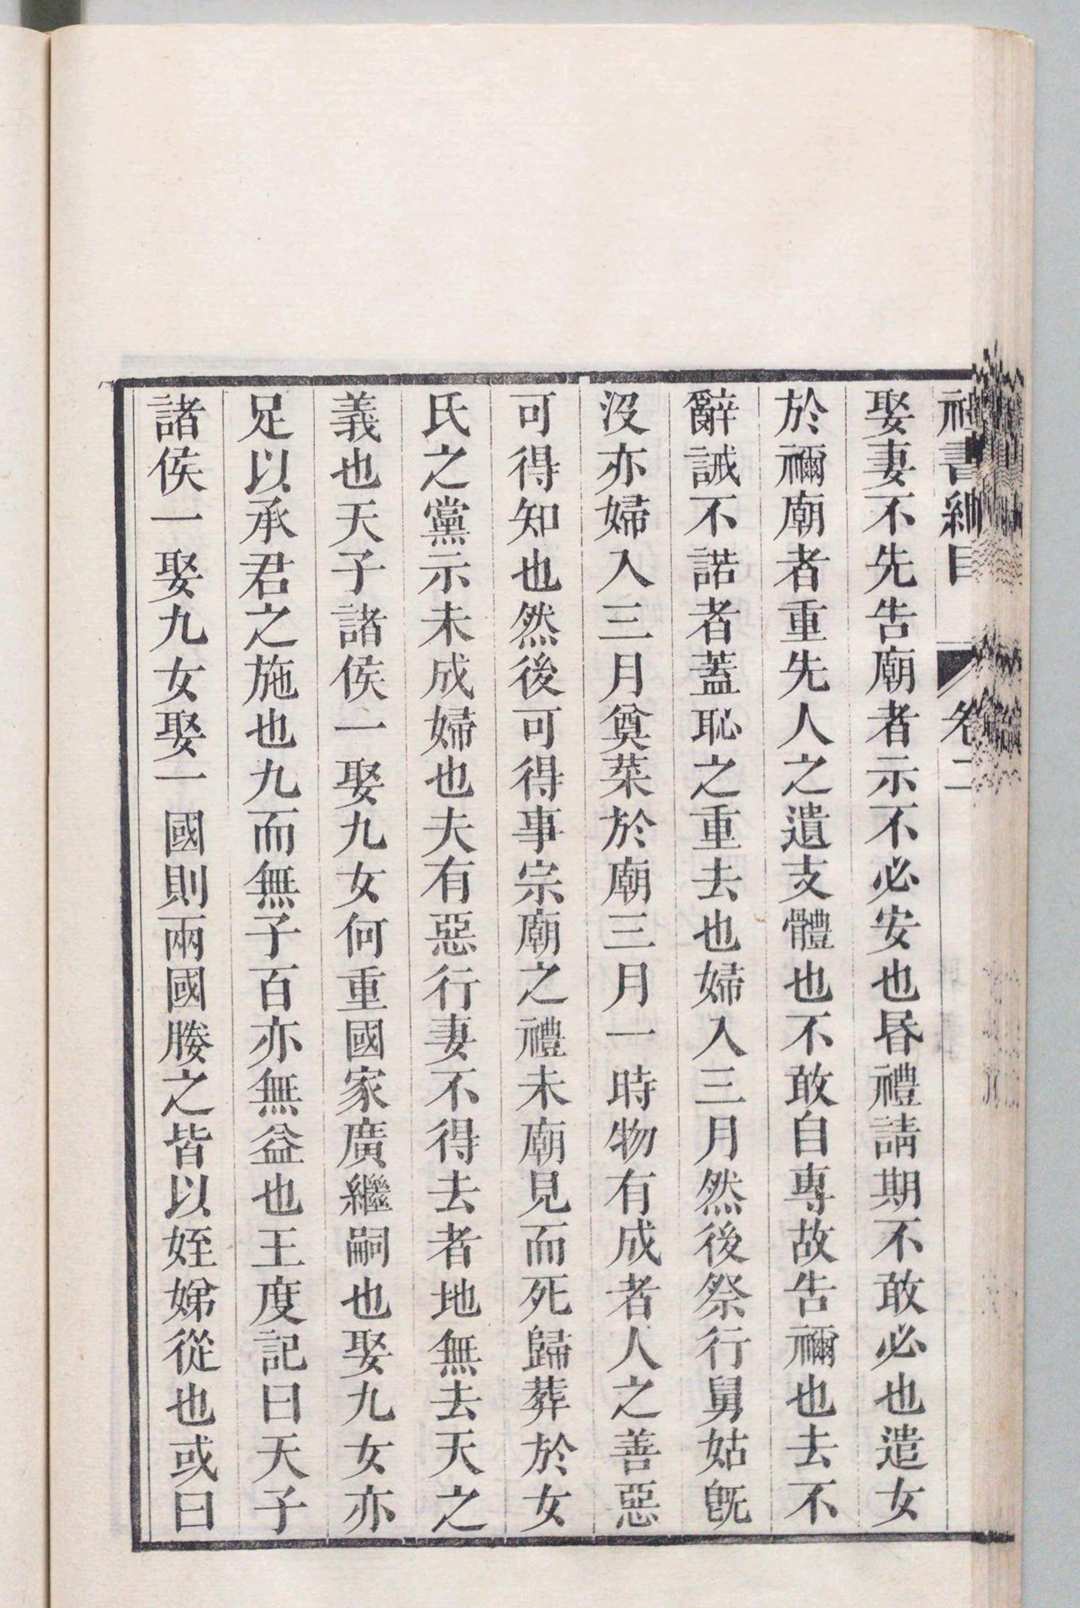 書細目 卷二
娶妻不先告廟者示不必安也昏禮請期不敢必也遣女
於禰廟者重先人之遺支體也不敢自專故告禰也去不
辭誡不諾者蓋恥之重去也婦入三月然後祭行舅姑旣
沒亦婦入三月奠菜於廟三月一時物有成者人之善惡
可得知也然後可得事宗廟之禮未廟見而死歸葬於女
氏之黨示未成婦也夫有惡行妻不得去者地無去天之
義也天子諸侯一娶九女何重國家廣繼嗣也娶九女亦
足以承君之施也九而無子百亦無益也王度記曰天子
諸侯一娶九女娶一國則兩國媵之皆以姪娣從也或曰